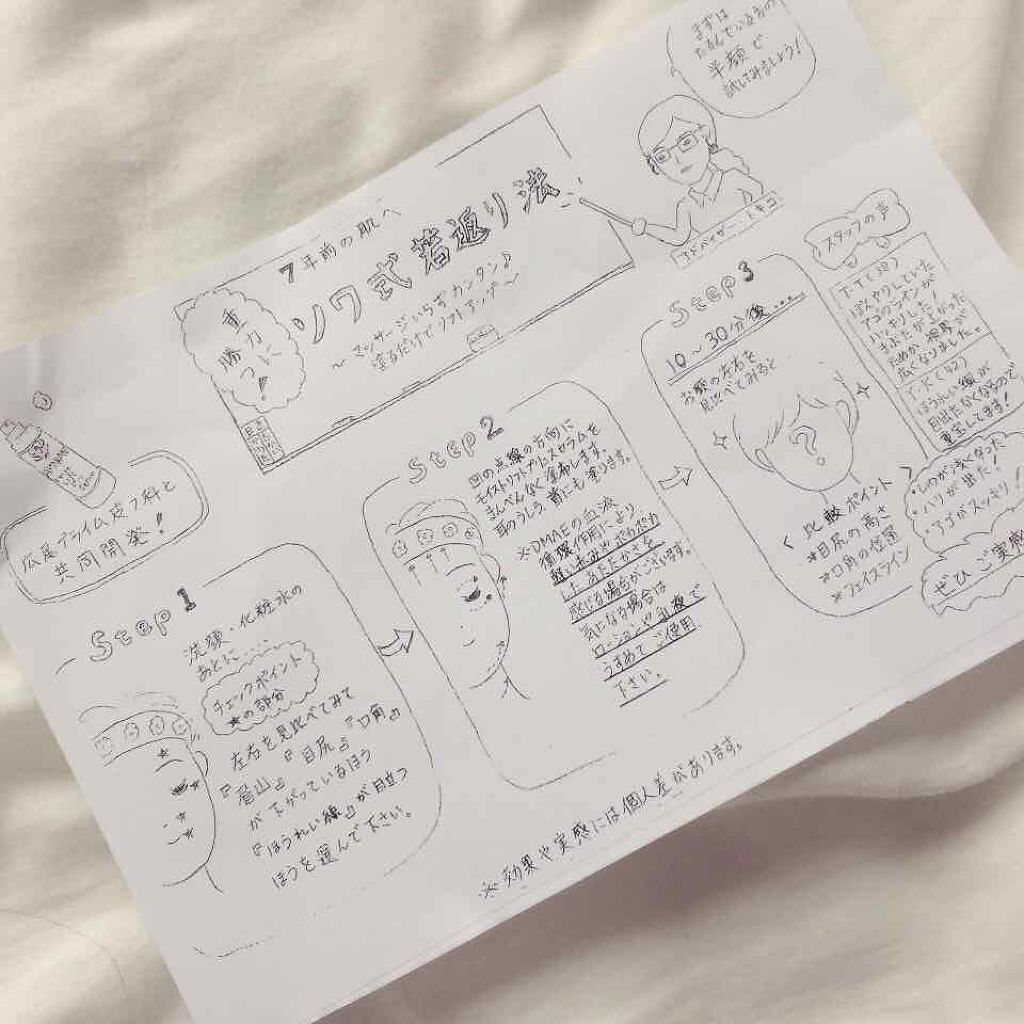 まずは
たるんでいる方の
半顔で
試してみましょう!
7年前の肌へ
ソワ式 若返り法
~マッサージいらずカンタン♪
塗るだけでリフトアップ~
重力に
勝つ!
アドバイザー
スタッフの声
T.T(38)
ぼんやりしていた
アゴのラインが
ハッキリした!
まぶたが上がった
ためか視界が
広くなりました。
T.K(42)
ほうれい線が
目出たなくなるので
重宝してます!
広尾プライム皮フ科と
共同開発!
Step1
洗顔・化粧水の
あとに....
チェックポイント
★の部分
左右を見比べてみて
『眉山』『目尻』『口角』
が下がっているほう
『ほうれい線』が目立つ
ほうを選んで下さい。
Step2
図の点線の方向に
モイストリフトナトスセラムを
まんべんなく塗布します。
耳のうしろ、首にも塗ります。
※DMAEの血流
循環作用により
軽い赤みやポカポカ
したあたたかさを
感じる場合がございます。
気になる場合は
ローションや乳液で
うすめてご使用
下さい。
Step3
10~30分後...
お顔の左右を
見比べてみると
?
<比較ポイント>
※目尻の高さ
※口角の位置
※フェイスライン
・しわが浅くなった!
・ハリが出た!
・アゴがスッキリ!
ぜひご実感
※効果や実感には個人差があります。